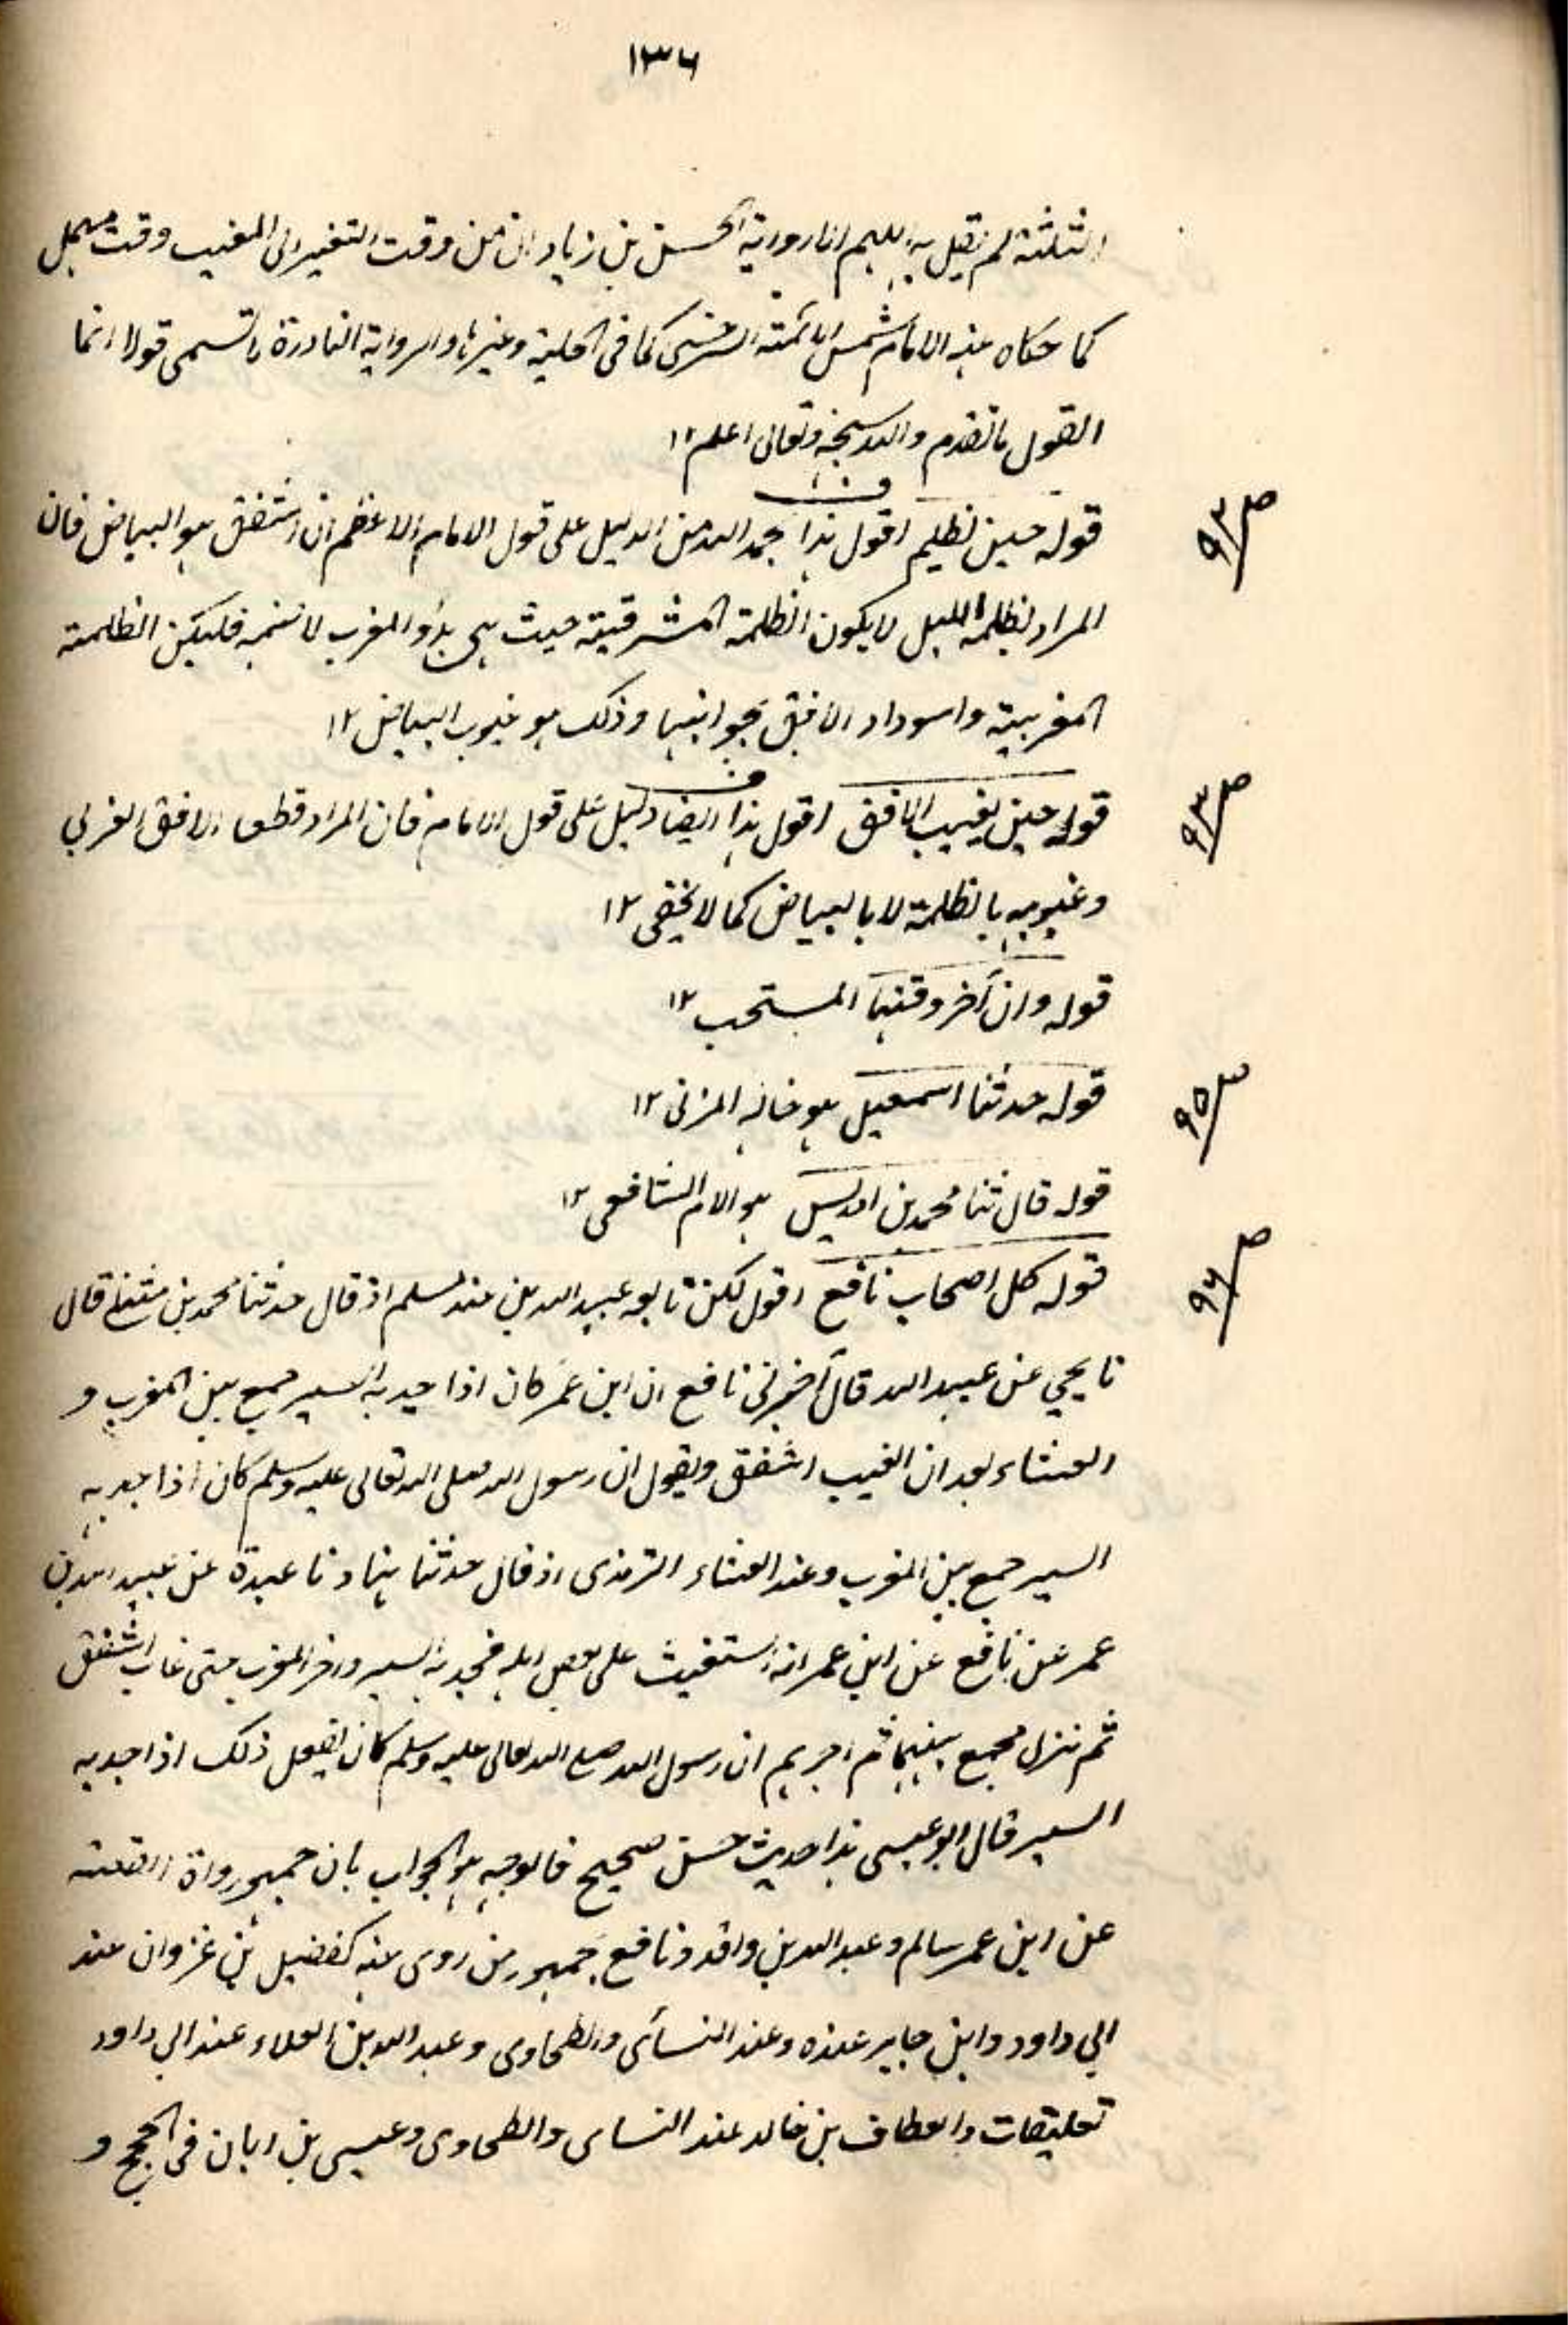 ١٣٦
الثلثة لم يقل به اللهم الا رواية الحسن بن زياد ان من وقت التغير الى المغيب وقت مهمل
كما حكاه عنه الامام شمس الائمة السرخسى كما فى الحلية وغيرها والرواية النادرة لا تسمى قولا انما
القول ما تقدم والله سبحنه وتعالى اعلم ١٢
ص ٩٣
قوله حين تظلم اقول هذا بحمد الله من الدليل على قول الامام الاعظم ان الشفق هو البياض فان
المراد بظلمة الليل لا يكون الظلمة المشرقية حيث هى بدؤ المغرب لا ختمه فليكن الظلمة
المغربية واسوداد الافق بجوانبها وذلك هو غيوب البياض ١٢
ص ٩٣
قوله حين يغيب الافق اقول هذا ايضا دليل على قول الامام فان المراد قطعا الافق الغربي
وغيوبه بالظلمة لا بالبياض كما لا يخفى ١٢
قوله وان آخر وقتها المستحب ١٢
ص ٩٥
قوله حدثنا اسمعيل هو خاله المزنى ١٢
قوله قال ثنا محمد بن ادريس هو الامام الشافعى ١٢
ص ٩٦
قوله كل اصحاب نافع اقول لكن تابعه عبيد الله بن عند مسلم اذ قال حدثنا محمد بن مثنى قال
نا يحيي عن عبيد الله قال أخبرنى نافع ان ابن عمر كان اذا جد به السير جمع بين المغرب و
العشاء بعد ان الغيب الشفق ويقول ان رسول الله صلى الله تعالى عليه وسلم كان اذا جد به
السير جمع بين المغرب وعند العشاء الترمذى اذ قال حدثنا هناد نا عبدة عن عبيد الله بن
عمر عن نافع عن ابن عمر انه استغيث على بعض اهله فجد به السير واخر المغرب حتى غاب الشفق
ثم نزل فجمع بينهما ثم اخبرهم ان رسول الله صلى الله تعالى عليه وسلم كان يفعل ذلك اذا جد به
السير قال ابو عيسى هذا حديث حسن صحيح فالوجه هو الجواب بان جمهور رواة القصة
عن ابن عمر سالم وعبد الله بن واقد ونافع جمهور من روى عنه كفضيل بن غزوان عند
ابي داود وابن جابر عنده وعند النسائى والطحاوى وعبد الله بن العلاء عند ابي داود
تعليقات والعطاف بن خالد عند النساى والطحاوى وعيسى بن ابان فى الحجج و